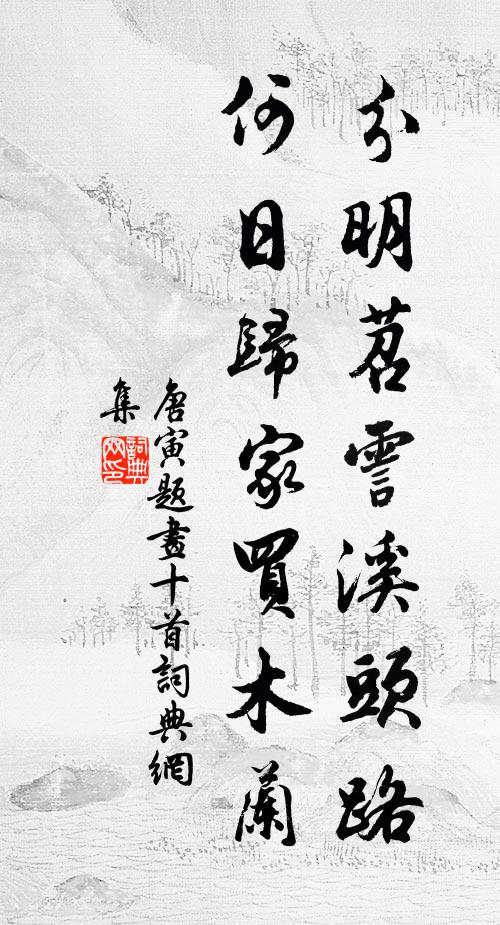 分明苕霅溪頭路
何日歸家買木蘭
唐寅題畫十首詞典網
集
詞典
网印